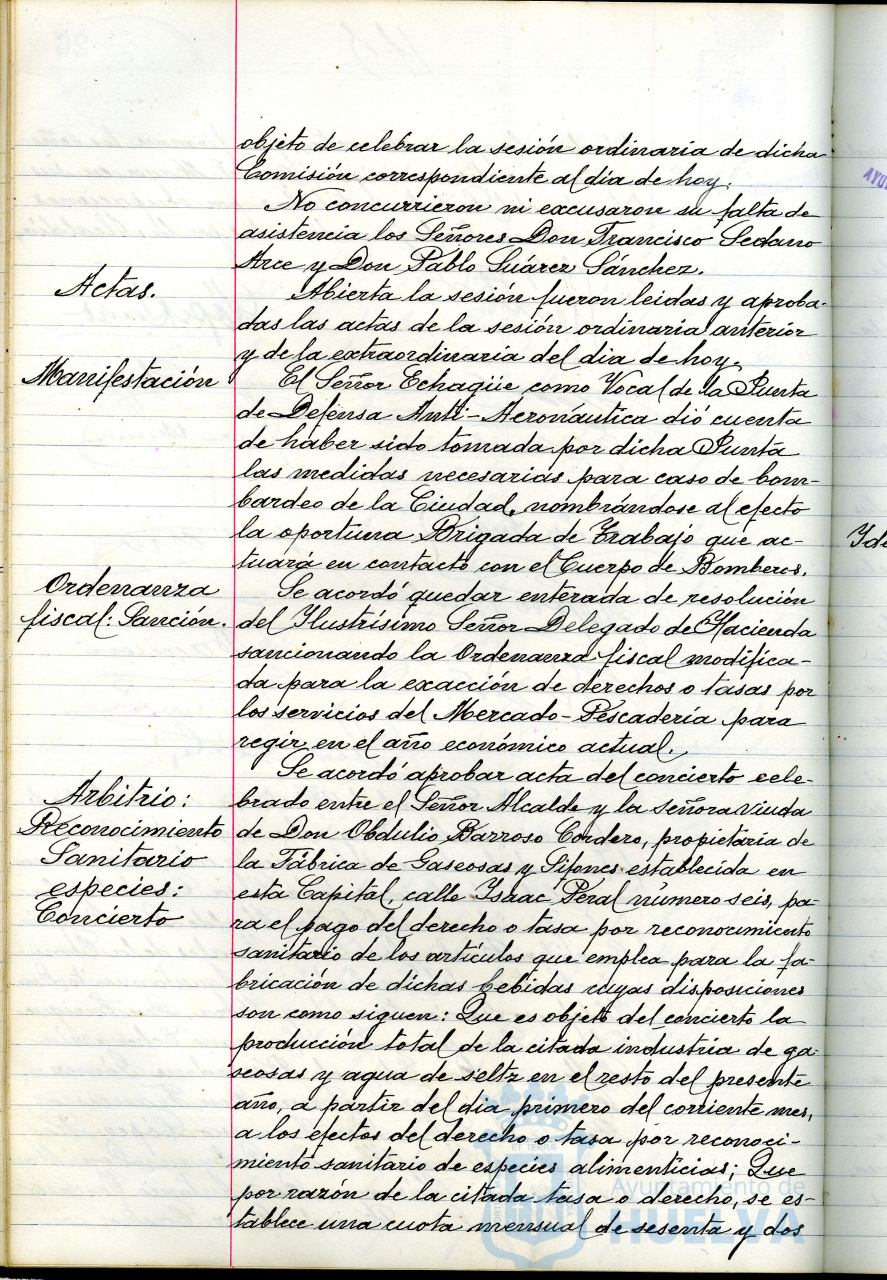 objeto de celebrar la sesión ordinaria de dicha
Comisión correspondiente al día de hoy.
No concurrieron ni excusaron su falta de
asistencia los Señores Don Francisco Sedano
Arce y Don Pablo Suárez Sánchez.
Actas.
Abierta la sesión fueron leidas y aproba-
das las actas de la sesión ordinaria anterior
y de la extraordinaria del dia de hoy.
Manifestación
El Señor Echagüe como Vocal de la Junta
de Defensa Anti-Aeronáutica dió cuenta
de haber sido tomada por dicha Junta
las medidas necesarias para caso de bom-
bardeo de la Ciudad, nombrándose al efecto
la oportuna Brigada de Trabajo que ac-
tuará en contacto con el Cuerpo de Bomberos.
Ordenanza
fiscal: Sanción.
Se acordó quedar enterada de resolución
del Ilustrísimo Señor Delegado de Hacienda
sancionando la Ordenanza fiscal modifica-
da para la exacción de derechos o tasas por
los servicios del Mercado-Pescadería para
regir en el año económico actual.
Arbitrio:
Reconocimiento
Sanitario
especies:
Concierto
Se acordó aprobar acta del concierto cele-
brado entre el Señor Alcalde y la señora viuda
de Don Obdulio Barroso Cordero, propietaria de
la Fábrica de Gaseosas y Sifones establecida en
esta Capital, calle Isaac Peral número seis, pa-
ra el pago del derecho o tasa por reconocimiento
sanitario de los artículos que emplea para la fa-
bricación de dichas bebidas cuyas disposiciones
son como siguen: Que es objeto del concierto la
producción total de la citada industria de ga-
seosas y agua de seltz en el resto del presente
año, a partir del día primero del corriente mes,
a los efectos del derecho o tasa por reconoci-
miento sanitario de especies alimenticias; Que
por razón de la citada tasa o derecho, se es-
tablece una cuota mensual de sesenta y dos
Ayuntamiento de
HUELVA